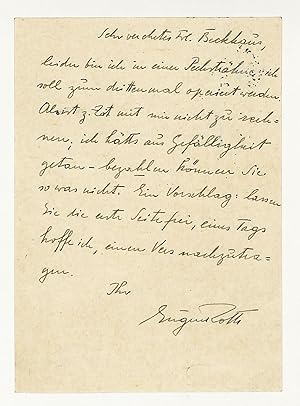 Sehr verehrtes Frl. Beckhaus,
leider bin ich in einer Pechsträhne: ich
soll zum drittenmal operiert werden.
Also ist z. Zt. mit mir nicht zu rech-
nen, ich hätts aus Gefälligkeit
getan - bezahlen können Sie
so was nicht. Ein Vorschlag: lassen
Sie die erste Seite frei, eines Tags
hoffe ich, einen Vers nachzutra-
gen.
Ihr
Eugen Roth